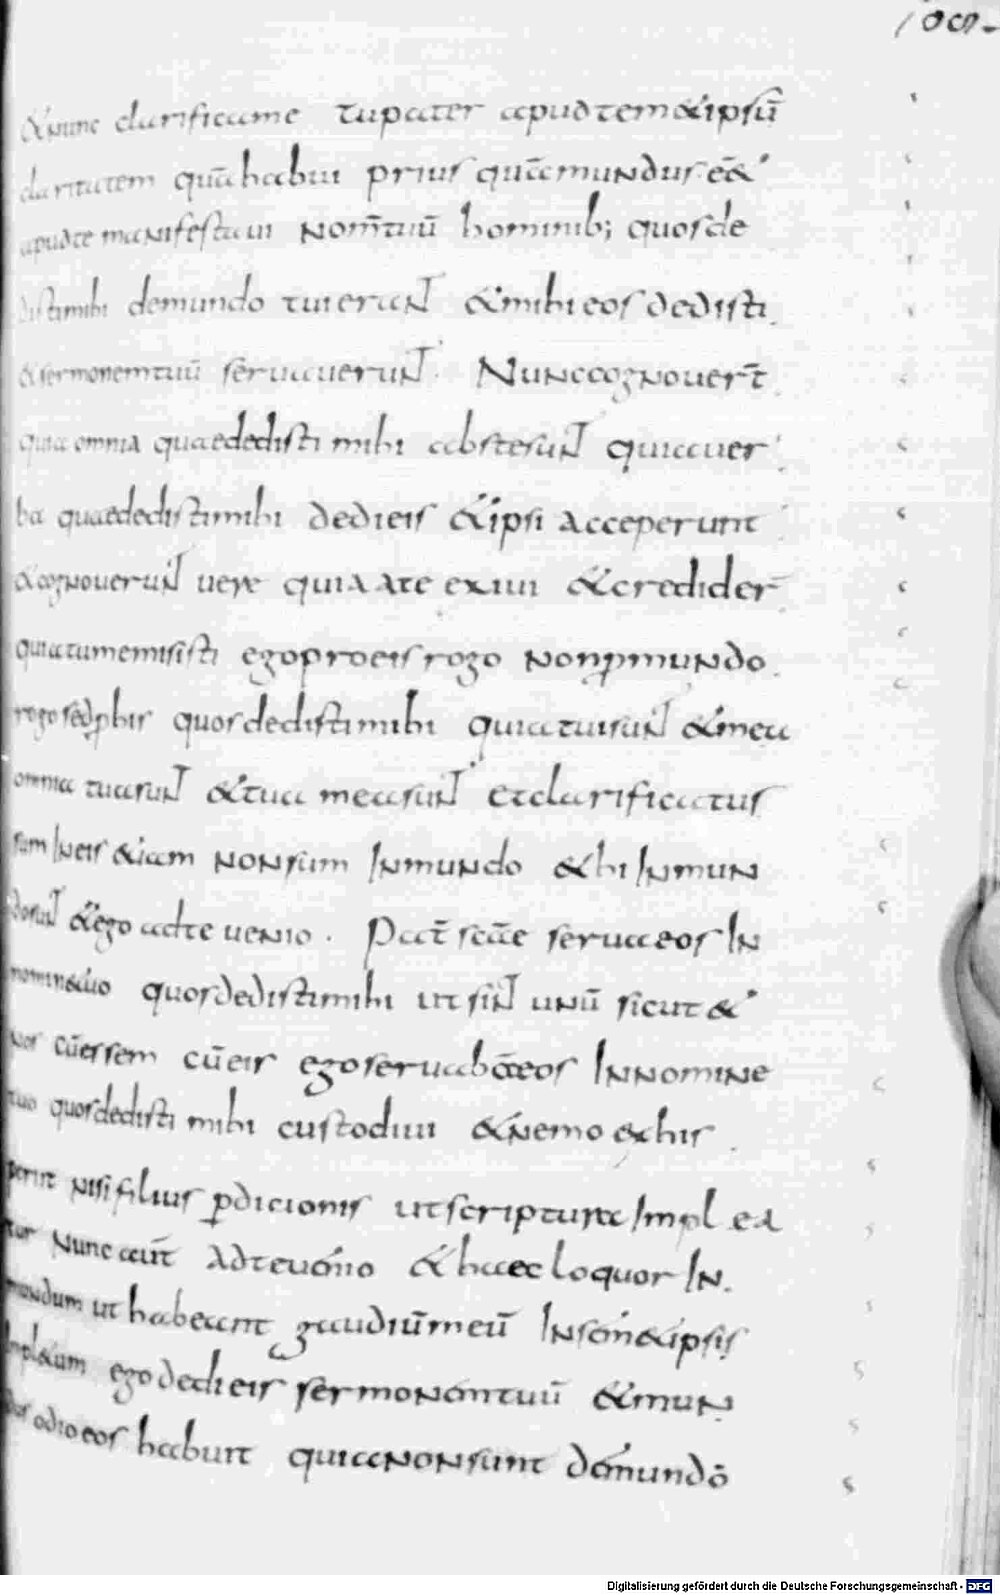 109.
&nunc clarificame tupater apudtem&ipsū
claritatem quā habui prius quāmundus eēt
apudte manifestaui nom̄tuū hominib; quosde
distimihi demundo tuierant &mihi eos dedisti
&sermonemtuū seruauerunt. Nunccognouer̄t
quia omnia quaededisti mihi abstesunt quiauer
ba quaededistimihi dedieis &ipsi acceperunt
&cognouerunt uere quia ate exiui &credider̄
quiatumemisisti egoproeis rogo nonꝓmundo
rogo sedꝓhis quosdedistimihi quiatuisunt &mea
omnia tuasunt &tua measunt etclarificatus
sum Ineis &iam nonsum Inmundo &hi Inmun
dosunt &ego adte uenio. Pat̄ scāe seruaeos In
nomin&uo quosdedistimihi ut sint unū sicut &
nos cūessem cūeis egoseruabāeos Innomine
tuo quosdedisti mihi custodiui &nemo exhis
periit nisi filius ꝑdicionis utscriptura Implea
tur Nunc aut̄ adteuenio &haec loquor In
mundum ut habeant gaudiūmeū Insem&ipsis
Impl&um ego dedi eis sermonemtuū &mun
dus odio eos habuit quianonsunt demundō
Digitalisierung gefördert durch die Deutsche Forschungsgemeinschaft - DFG